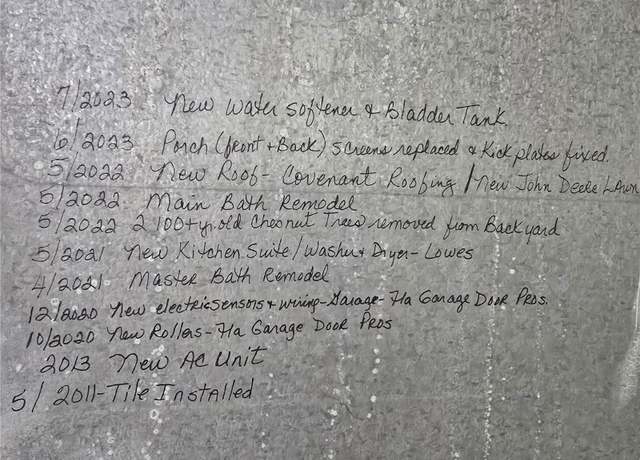 7/2023 New water softener & Bladder Tank
6/2023 Porch (front + Back) screens replaced & Kick plates fixed.
5/2022 New Roof- Covenant Roofing / New John Deere Lawn
5/2022 Main Bath Remodel
5/2022 2 100+yr.old Chesnut Trees removed from Backyard
5/2021 New Kitchen Suite/Washer + Dryer- Lowes
4/2021 Master Bath Remodel
12/2020 New electric sensors + wiring- Garage- Fla Garage Door Pros.
10/2020 New Rollers- Fla Garage Door Pros
2013 New AC Unit
5/2011-Tile Installed